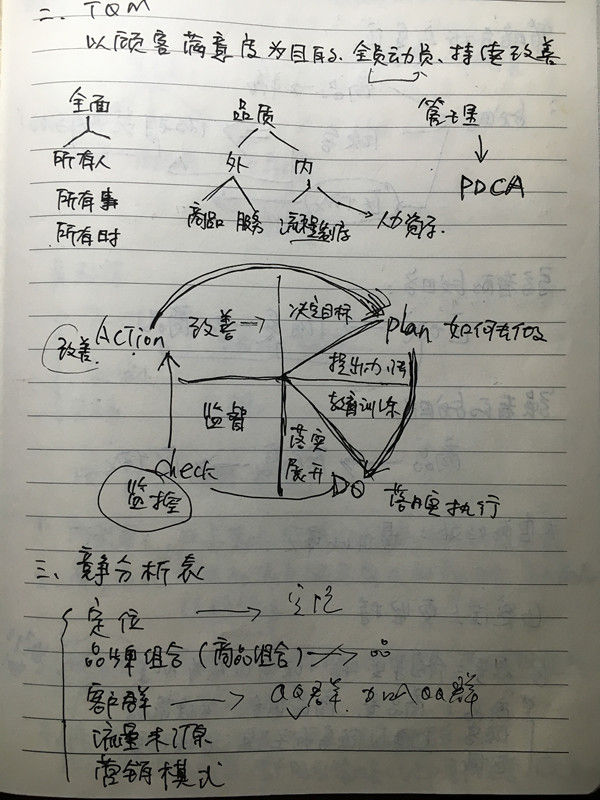 二、TQM
以顾客满意度为目的、全员动员、持续改善
全面
所有人
所有事
所有时
品质
外 内
商品 服务 流程制度 人力资源.
管理
PDCA
改善
决定目标
Action
改善
plan 如何去做
提出方法
教育训练
监督
落实
展开
check
监控
DO
落实执行
三、竞争分析表
定位
品牌组合(商品组合) 品
客户群 QQ群、加入QQ群
流量来源
营销模式